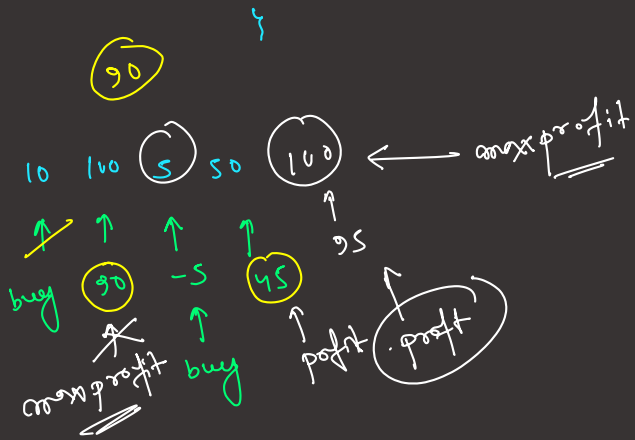 }
90
10 100 5 50 100 maxprofit
95
buy 90 -5 45
maxprofit buy pofit .proft